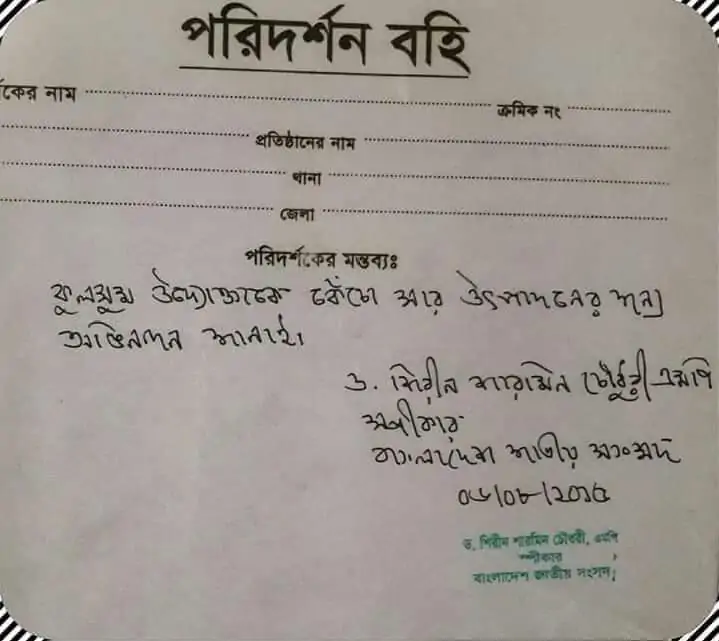 পরিদর্শন বহি
র্শকের নাম ........ ক্রমিক নং ........
প্রতিষ্ঠানের নাম ........
থানা ........
জেলা ........
পরিদর্শকের মন্তব্যঃ
কুলসুম উদ্যোক্তাকে কেঁচো সার উৎপাদনের জন্য
অভিনন্দন জানাই।
ড. শিরীন শারমিন চৌধুরী এমপি
স্পীকার
বাংলাদেশ জাতীয় সংসদ
০৬/০৮/২০১৫
ড. শিরীন শারমিন চৌধুরী, এমপি
স্পীকার
বাংলাদেশ জাতীয় সংসদ।